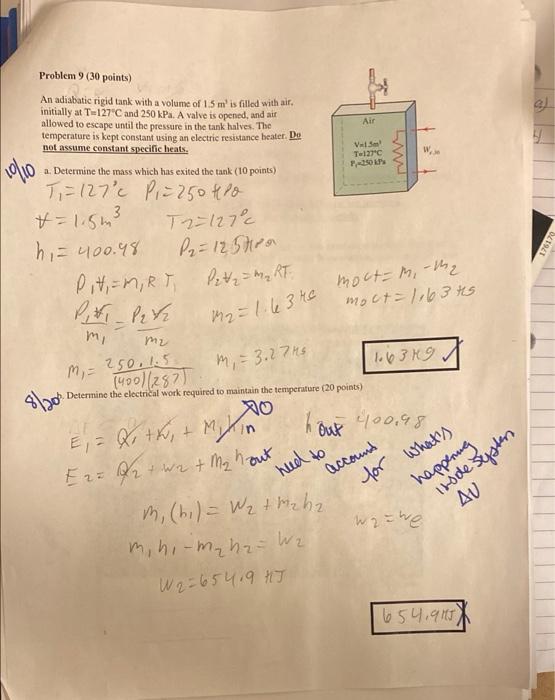 Problem 9 (30 points)
An adiabatic rigid tank with a volume of 1.5 m³ is filled with air,
initially at T=127°C and 250 kPa. A valve is opened, and air
allowed to escape until the pressure in the tank halves. The
temperature is kept constant using an electric resistance heater. Do
not assume constant specific heats.
Air
V=1.5m³
T=127°C
P₁=250 kPa
Wₑ,in
10/10
a. Determine the mass which has exited the tank (10 points)
T₁=127°c P₁=250 kPa
V=1.5m³ T2=127°c
h₁=400.98 P₂=125kPa
P₁V₁=m₁RT₁ P₂V₂=m₂RT. mout=m₁-m₂
P₁V₁/m₁ = P₂V₂/m₂ m₂=1.63 kg mout=1.63 kg
m₁= 250.1.5/(400)(287) m₁=3.27kg
1.63 kg ✓
8/20
b. Determine the electrical work required to maintain the temperature (20 points)
E₁= Q₁+W₁+M₁hin 0 hout=400.98
E₂= Q₂+W₂+m₂hout
need to account for what's happening inside system ΔU
m₁(h₁)=W₂+m₂h₂ W₂=We
m₁h₁-m₂h₂=W₂
W₂=654.9 kJ
654.9kJ X
176170
a)